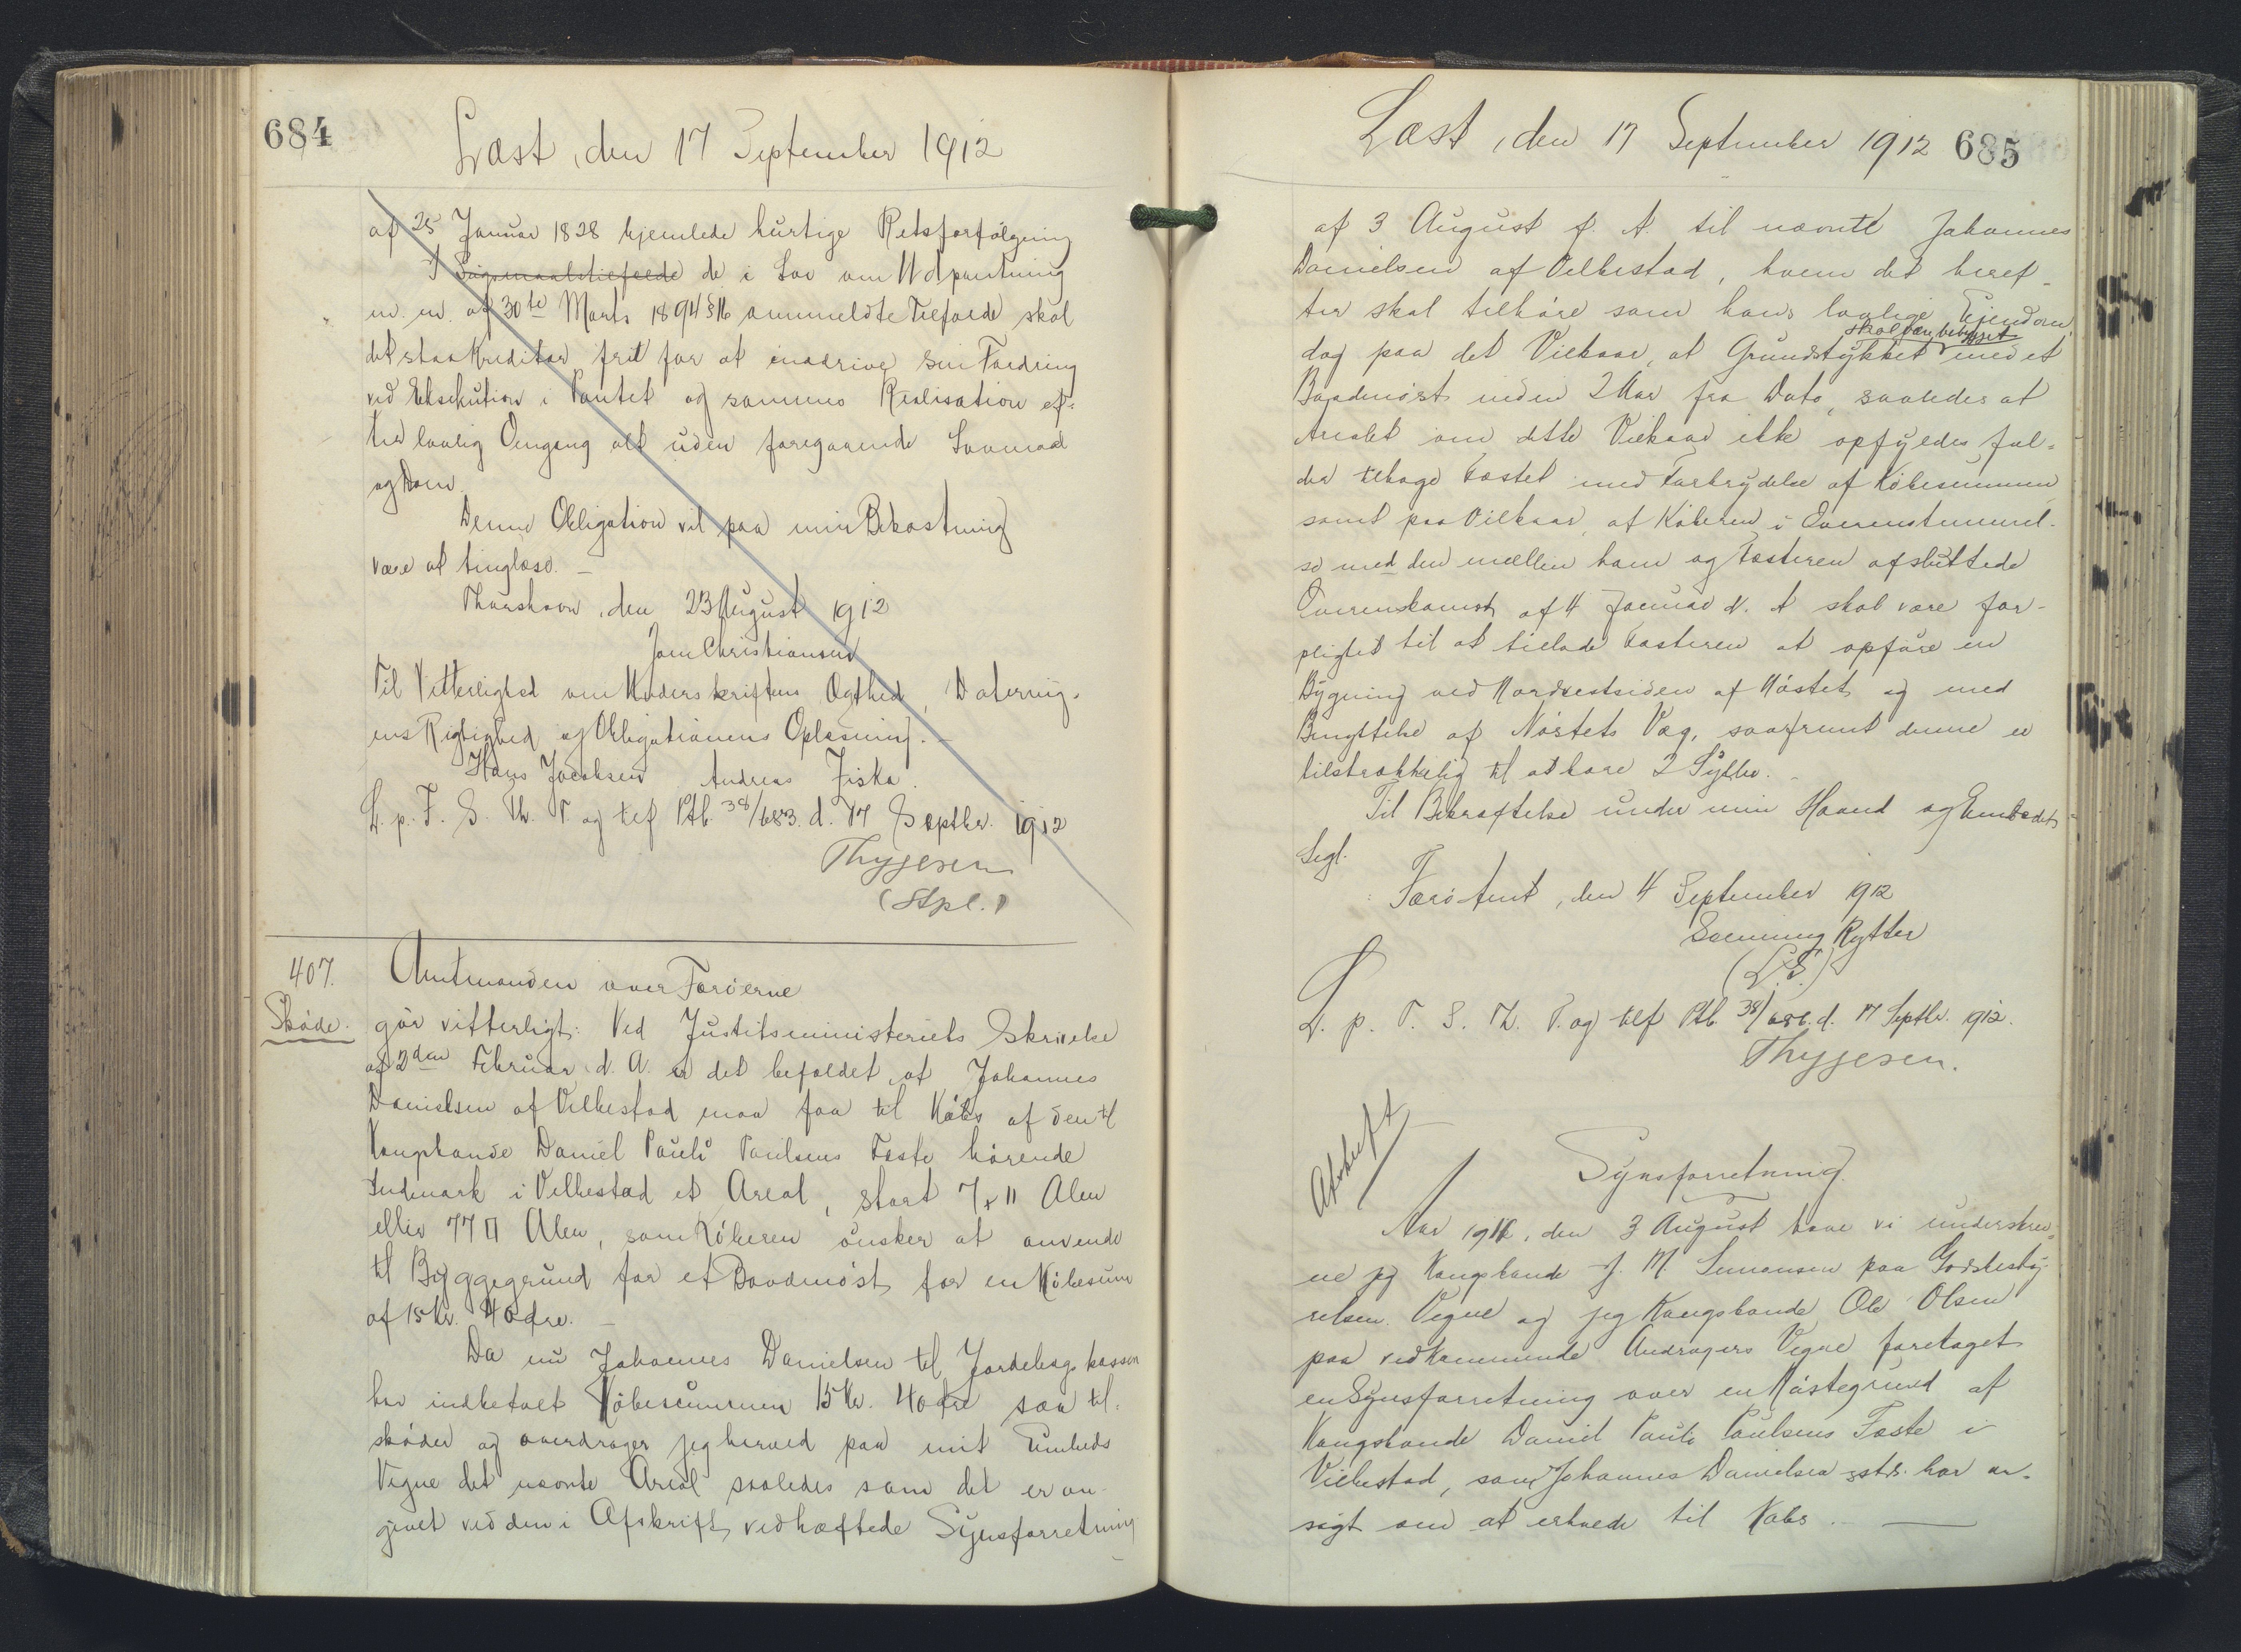 684
Læst, den 17 September 1912
af 25 Januar 1828 hjemlede hurtige Retsforfølgning
I Søgsmaalstilfælde de i Lov om Udpantning
m. m. af 30te Marts 1894 § 16 ommeldte Tilfælde skal
det staa Kreditor frit for at inddrive sin Fordring
ved Eksekution i Pantet og sammes Realisation ef-
ter lovlig Omgang alt uden foregaaende Lovmaal
og Dom.
Denne Obligation vil paa min Bekostning
være at tinglæse. —
Thorshavn, den 23 August 1912
Joen Christiansen
Til Vitterlighed om Underskriftens Ægthed, Daterin-
ens Rigtighed og Obligationens Oplæsning. —
Hans Jacobsen Andreas Ziska.
L. p. F. S. Th. T. og tilf Ptb. 38/683. d. 17 Septbr. 1912
Thygesen
(Stpl.)
407. Amtmanden over Færøerne
Skøde. gør vitterligt: Ved Justitsministeriets Skrivelse
af 2den Februar d. A. er det befaldet, at Johannes
Danielsen af Velbestad maa faa til Købs af den til
Kongsbonde Daniel Pauli Paulsens Fæste hørende
Indmark i Velbestad et Areal, stort 7 x 11 Alen
eller 77 □ Alen, som Køberen ønsker at anvende
til Byggegrund for et Baadenøst for en Købesum
af 15 Kr. 40 Øre. —
Da nu Johannes Danielsen til Jordebogskassen
har indbetalt Købesummen 15 Kr. 40 Øre saa til-
skøder og overdrager jeg herved paa mit Embeds
Vegne det nævnte Areal saaledes som det er an-
givet ved den i Afskrift vedhæftede Synsforretning
Læst, den 17 September 1912 685
af 3 August f. A. til nævnte Johannes
Danielsen af Velbestad, hvem det heref-
ter skal tilhøre som hans lovlige Ejendom,
skal være bebygget
dog paa det Vilkaar, at Grundstykket med et
Baadenøst inden 2 Aar fra Dato, saaledes at
Arealet om dette Vilkaar ikke opfyldes fal-
der tilbage Fæstet med Forbrydelse af Købesummen
samt paa Vilkaar, at Køberen i Overensstemmel-
se med den mellem ham og Fæsteren afsluttede
Overenskomst af 4 Januar d. A skal være for-
pligtet til at tillade Fæsteren at opføre en
Bygning ved Nordvestsiden af Nøstet og med
Benyttelse af Nøstets Væg, saafremt denne er
tilstrækkelig til at bære 2 Syller. —
Til Bekræftelse under min Haand og Embedets
Segl.
Færø Amt, den 4 September 1912
Svenning Rytter
(L.S.)
L. p. T. S. Th. T. og tilf Ptb. 38/686. d. 17 Septbr. 1912.
Thygesen.
Afskrift
Synsforretning.
Aar 1911, den 3 August have vi underskrev-
ne jeg Kongsbonde J. M. Simonsen paa Godsbesty-
relsen Vegne og jeg Kongsbonde Ole Olsen
paa vedkommende Andragers Vegne foretaget
en Synsforretning over en Nøstegrund af
Kongsbonde Daniel Pauli Paulsens Fæste i
Vilbestad, som Johannes Danielsen sstds. har an-
søgt om at erhverve til Købs. —